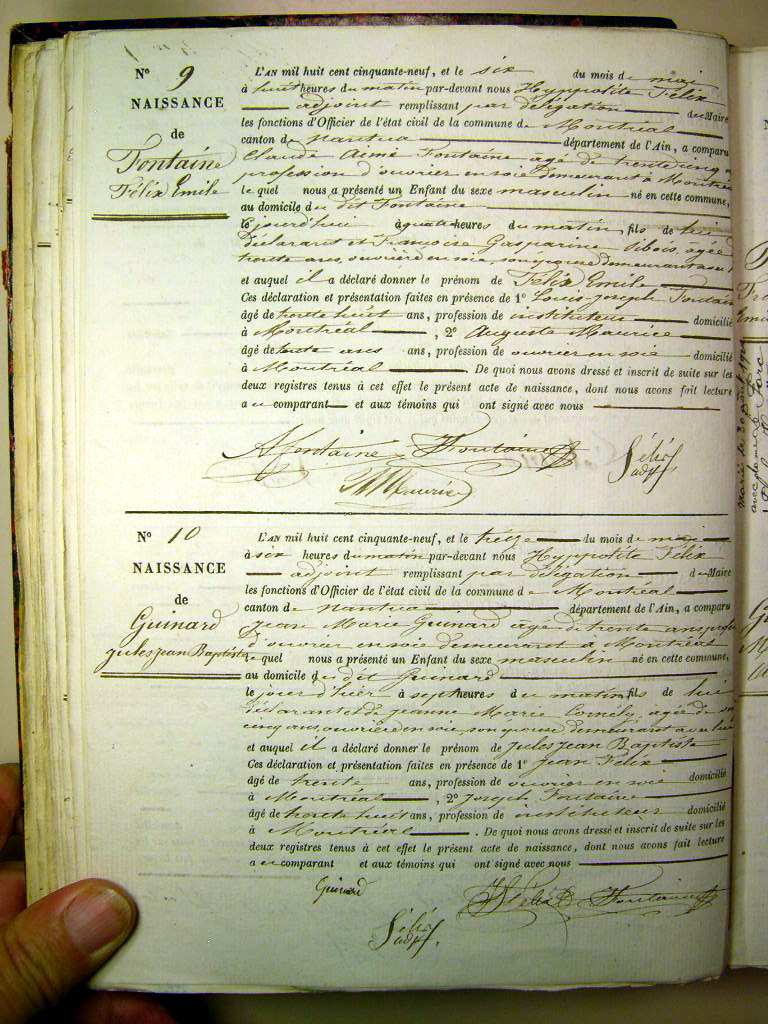 N° 9
NAISSANCE
de
Fontaine
Félix Emile
L'AN mil huit cent cinquante-neuf, et le six du mois de mai
à huit heures du matin par-devant nous Hyppolite Félix
adjoint remplissant par délégation du Maire
les fonctions d'Officier de l'état civil de la commune de Montréal
canton de Nantua département de l'Ain, a comparu
Claude Aimé Fontaine âgé de trente cinq
profession d'ouvrier en soie demeurant à Montréal
le quel nous a présenté un Enfant du sexe masculin né en cette commune,
au domicile du dit Fontaine
le jourd'hui à quatre heures du matin, fils de lui
déclarant et Françoise Gasparine âgée
trente ans, ouvrière en soie, son épouse demeurant avec
et auquel il a déclaré donner le prénom de Félix Emile
Ces déclaration et présentation faites en présence de 1° Louis Joseph Fontaine
âgé de trente huit ans, profession de instituteur domicilié
à Montréal , 2° Auguste Maurice
âgé de trente ans ans, profession de ouvrier en soie domicilié
à Montréal . De quoi nous avons dressé et inscrit de suite sur les
deux registres tenus à cet effet le présent acte de naissance, dont nous avons fait lecture
a u comparant et aux témoins qui ont signé avec nous
A fontaine Fontaine Félix
adjt.
Maurice
N° 10
NAISSANCE
de
Guinard
Jules Jean Baptiste
L'AN mil huit cent cinquante-neuf, et le treize du mois de mai
à six heures du matin par-devant nous Hyppolite Félix
adjoint remplissant par délégation du Maire
les fonctions d'Officier de l'état civil de la commune de Montréal
canton de Nantua département de l'Ain, a comparu
Jean Marie Guinard âgé de trente ans profes
d'ouvrier en soie demeurant à Montréal
le quel nous a présenté un Enfant du sexe masculin né en cette commune,
au domicile du dit Guinard
le jour d'hier à sept heures du matin, fils de lui
déclarant et de Jeanne Marie Cornély, agée de
cinq ans, ouvrière en soie, son épouse demeurant avec lui
et auquel il a déclaré donner le prénom de Jules Jean Baptiste
Ces déclaration et présentation faites en présence de 1° Jean Félix
âgé de trente ans, profession de ouvrier en soie domicilié
à Montréal , 2° Joseph Fontaine
âgé de trente huit ans, profession de instituteur domicilié
à Montréal . De quoi nous avons dressé et inscrit de suite sur les
deux registres tenus à cet effet le présent acte de naissance, dont nous avons fait lecture
a u comparant et aux témoins qui ont signé avec nous
Guinard Félix Fontaine
Félix
adjt.